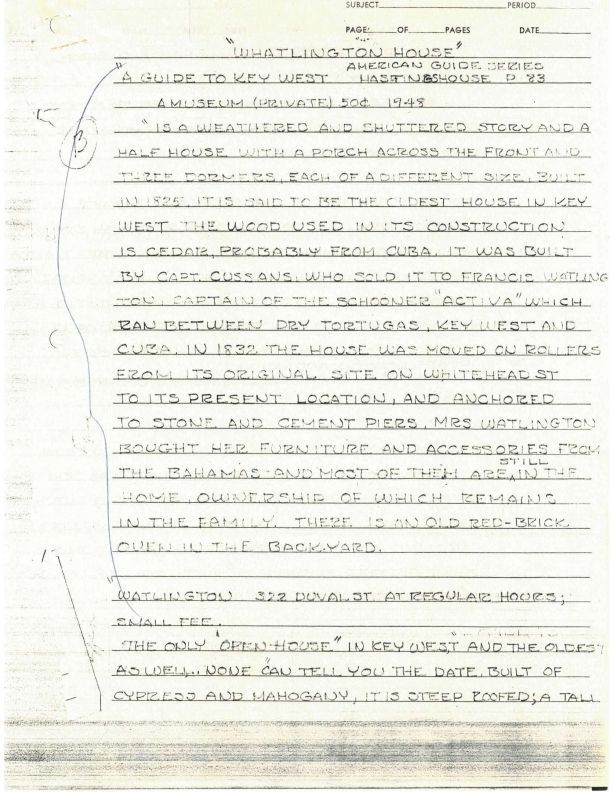 SUBJECT PERIOD
PAGE OF PAGES DATE
"WHATLINGTON HOUSE"
AMERICAN GUIDE SERIES
"A GUIDE TO KEY WEST HASTINGSHOUSE P 83
A MUSEUM (PRIVATE) 50¢ 1948
B
"IS A WEATHERED AND SHUTTERED STORY AND A
HALF HOUSE WITH A PORCH ACROSS THE FRONT AND
THREE DORMERS, EACH OF A DIFFERENT SIZE. BUILT
IN 1825, IT IS SAID TO BE THE OLDEST HOUSE IN KEY
WEST THE WOOD USED IN ITS CONSTRUCTION
IS CEDAR, PROBABLY FROM CUBA. IT WAS BUILT
BY CAPT. CUSSANS, WHO SOLD IT TO FRANCIS WATLING
TON, CAPTAIN OF THE SCHOONER "ACTIVA" WHICH
RAN BETWEEN DRY TORTUGAS, KEY WEST AND
CUBA. IN 1832 THE HOUSE WAS MOVED ON ROLLERS
FROM ITS ORIGINAL SITE ON WHITEHEAD ST
TO ITS PRESENT LOCATION, AND ANCHORED
TO STONE AND CEMENT PIERS, MRS WATLINGTON
BOUGHT HER FURNITURE AND ACCESSORIES FROM
STILL
THE BAHAMAS. AND MOST OF THEM ARE, IN THE
HOME, OWNERSHIP OF WHICH REMAINS
IN THE FAMILY. THERE IS AN OLD RED-BRICK
OVEN IN THE BACKYARD.
"WATLINGTON 322 DUVAL ST. AT REGULAR HOURS;
SMALL FEE.
THE ONLY "OPEN-HOUSE" IN KEY WEST AND THE OLDEST
AS WELL.. NONE CAN TELL YOU THE DATE. BUILT OF
CYPRESS AND MAHOGANY, IT IS STEEP ROOFED; A TALL